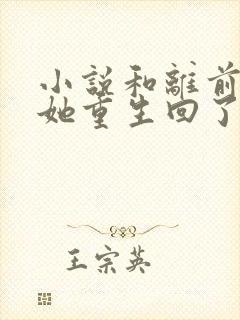 小説和離前
她重生回了
王宗英